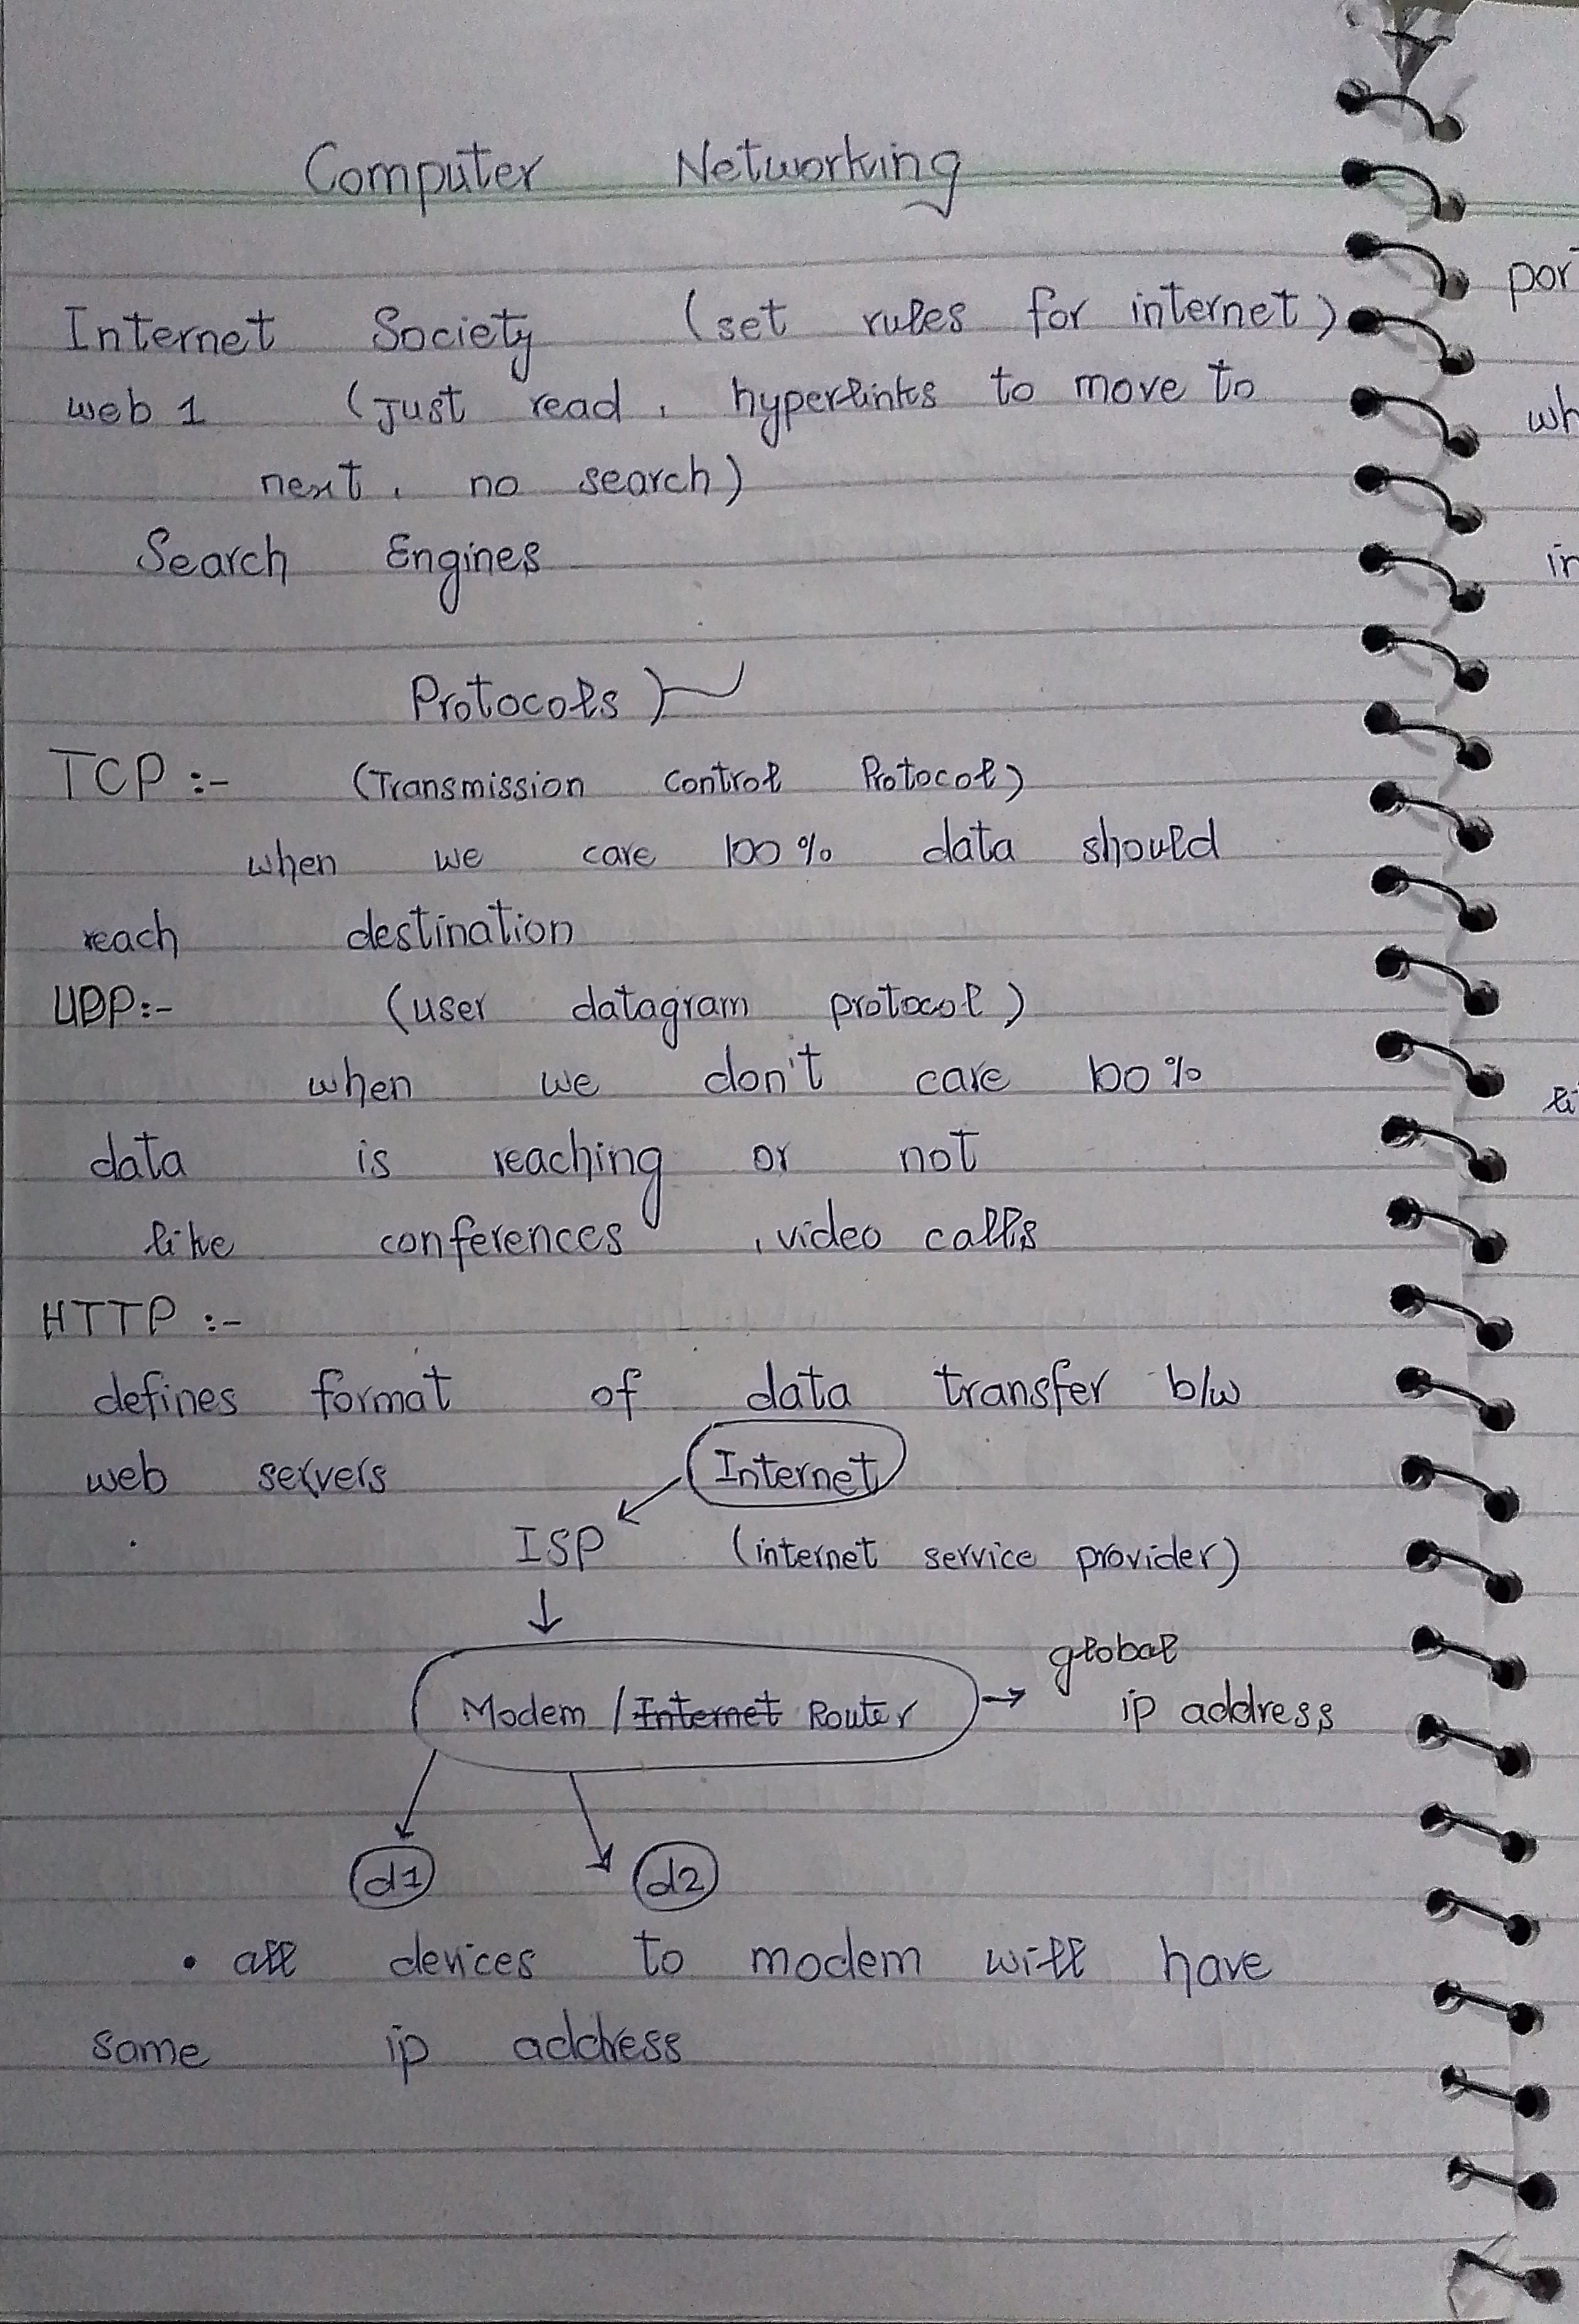 Computer Networking
Internet Society (set rules for internet)
web 1 (Just read, hyperlinks to move to
next, no search)
Search Engines
Protocols
TCP :- (Transmission Control Protocol)
when we care 100% data should
reach destination
UDP:- (user datagram protocol)
when we don't care 100%
data is reaching or not
like conferences, video calls
HTTP :-
defines format of data transfer b/w
web servers
Internet
ISP (internet service provider)
Modem / Internet Router → global
ip address
d1 d2
• all devices to modem will have
same ip address